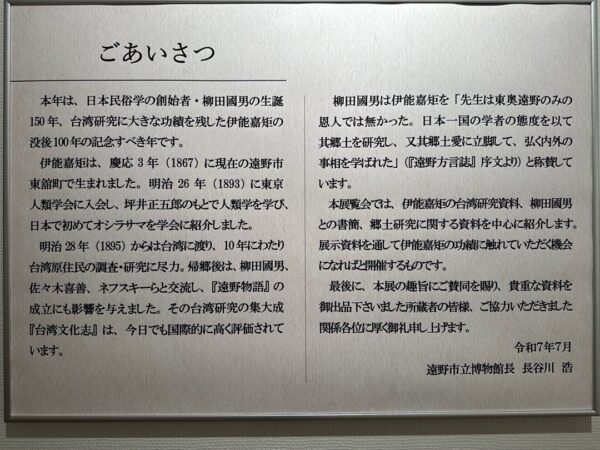 ごあいさつ
本年は、日本民俗学の創始者・柳田國男の生誕
150年、台湾研究に大きな功績を残した伊能嘉矩の
没後100年の記念すべき年です。
伊能嘉矩は、慶応3年(1867)に現在の遠野市
東舘町で生まれました。明治26年(1893)に東京
人類学会に入会し、坪井正五郎のもとで人類学を学び、
日本で初めてオシラサマを学会に紹介しました。
明治28年(1895)からは台湾に渡り、10年にわたり
台湾原住民の調査・研究に尽力。帰郷後は、柳田國男、
佐々木喜善、ネフスキーらと交流し、『遠野物語』の
成立にも影響を与えました。その台湾研究の集大成
『台湾文化志』は、今日でも国際的に高く評価されて
います。
柳田國男は伊能嘉矩を「先生は東奥遠野のみの
恩人では無かった。日本一国の学者の態度を以て
其郷土を研究し、又其郷土愛に立脚して、弘く内外の
事相を学ばれた」(『遠野方言誌』序文より)と称賛して
います。
本展覧会では、伊能嘉矩の台湾研究資料、柳田國男
との書簡、郷土研究に関する資料を中心に紹介します。
展示資料を通して伊能嘉矩の功績に触れていただく機会
になればと開催するものです。
最後に、本展の趣旨にご賛同を賜り、貴重な資料を
御出品下さいました所蔵者の皆様、ご協力いただきました
関係各位に厚く御礼申し上げます。
令和7年7月
遠野市立博物館長 長谷川 浩